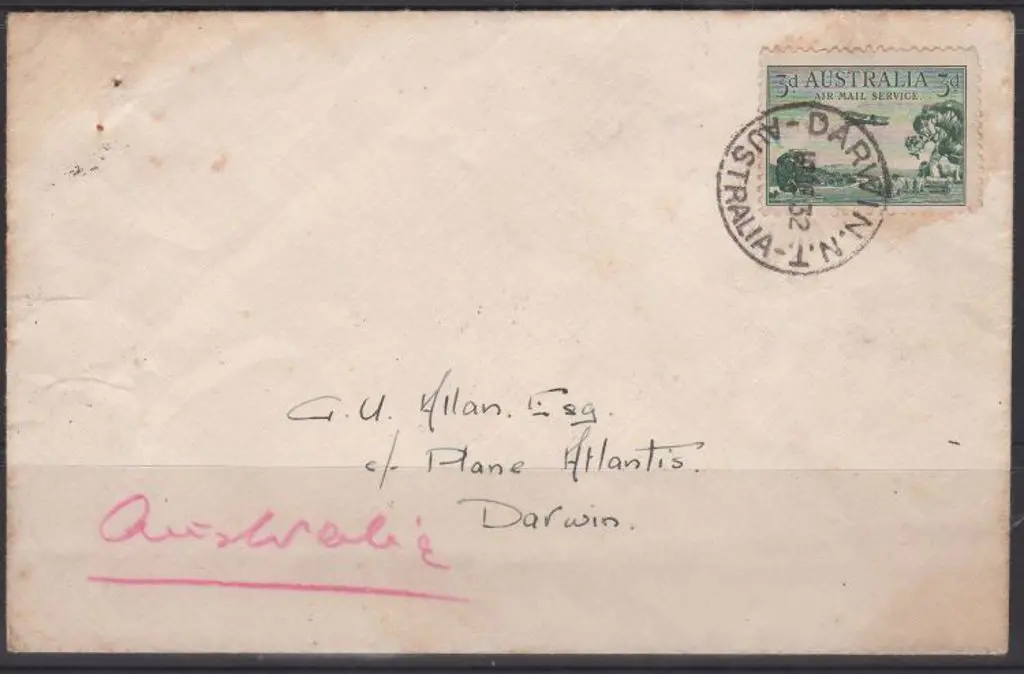 3d AUSTRALIA 3d
AIR MAIL SERVICE
DARWIN.N.T.-AUSTRALIA-
32
G.U. Allan. Esq.
c/- Plane Atlantis.
Darwin.
Australia